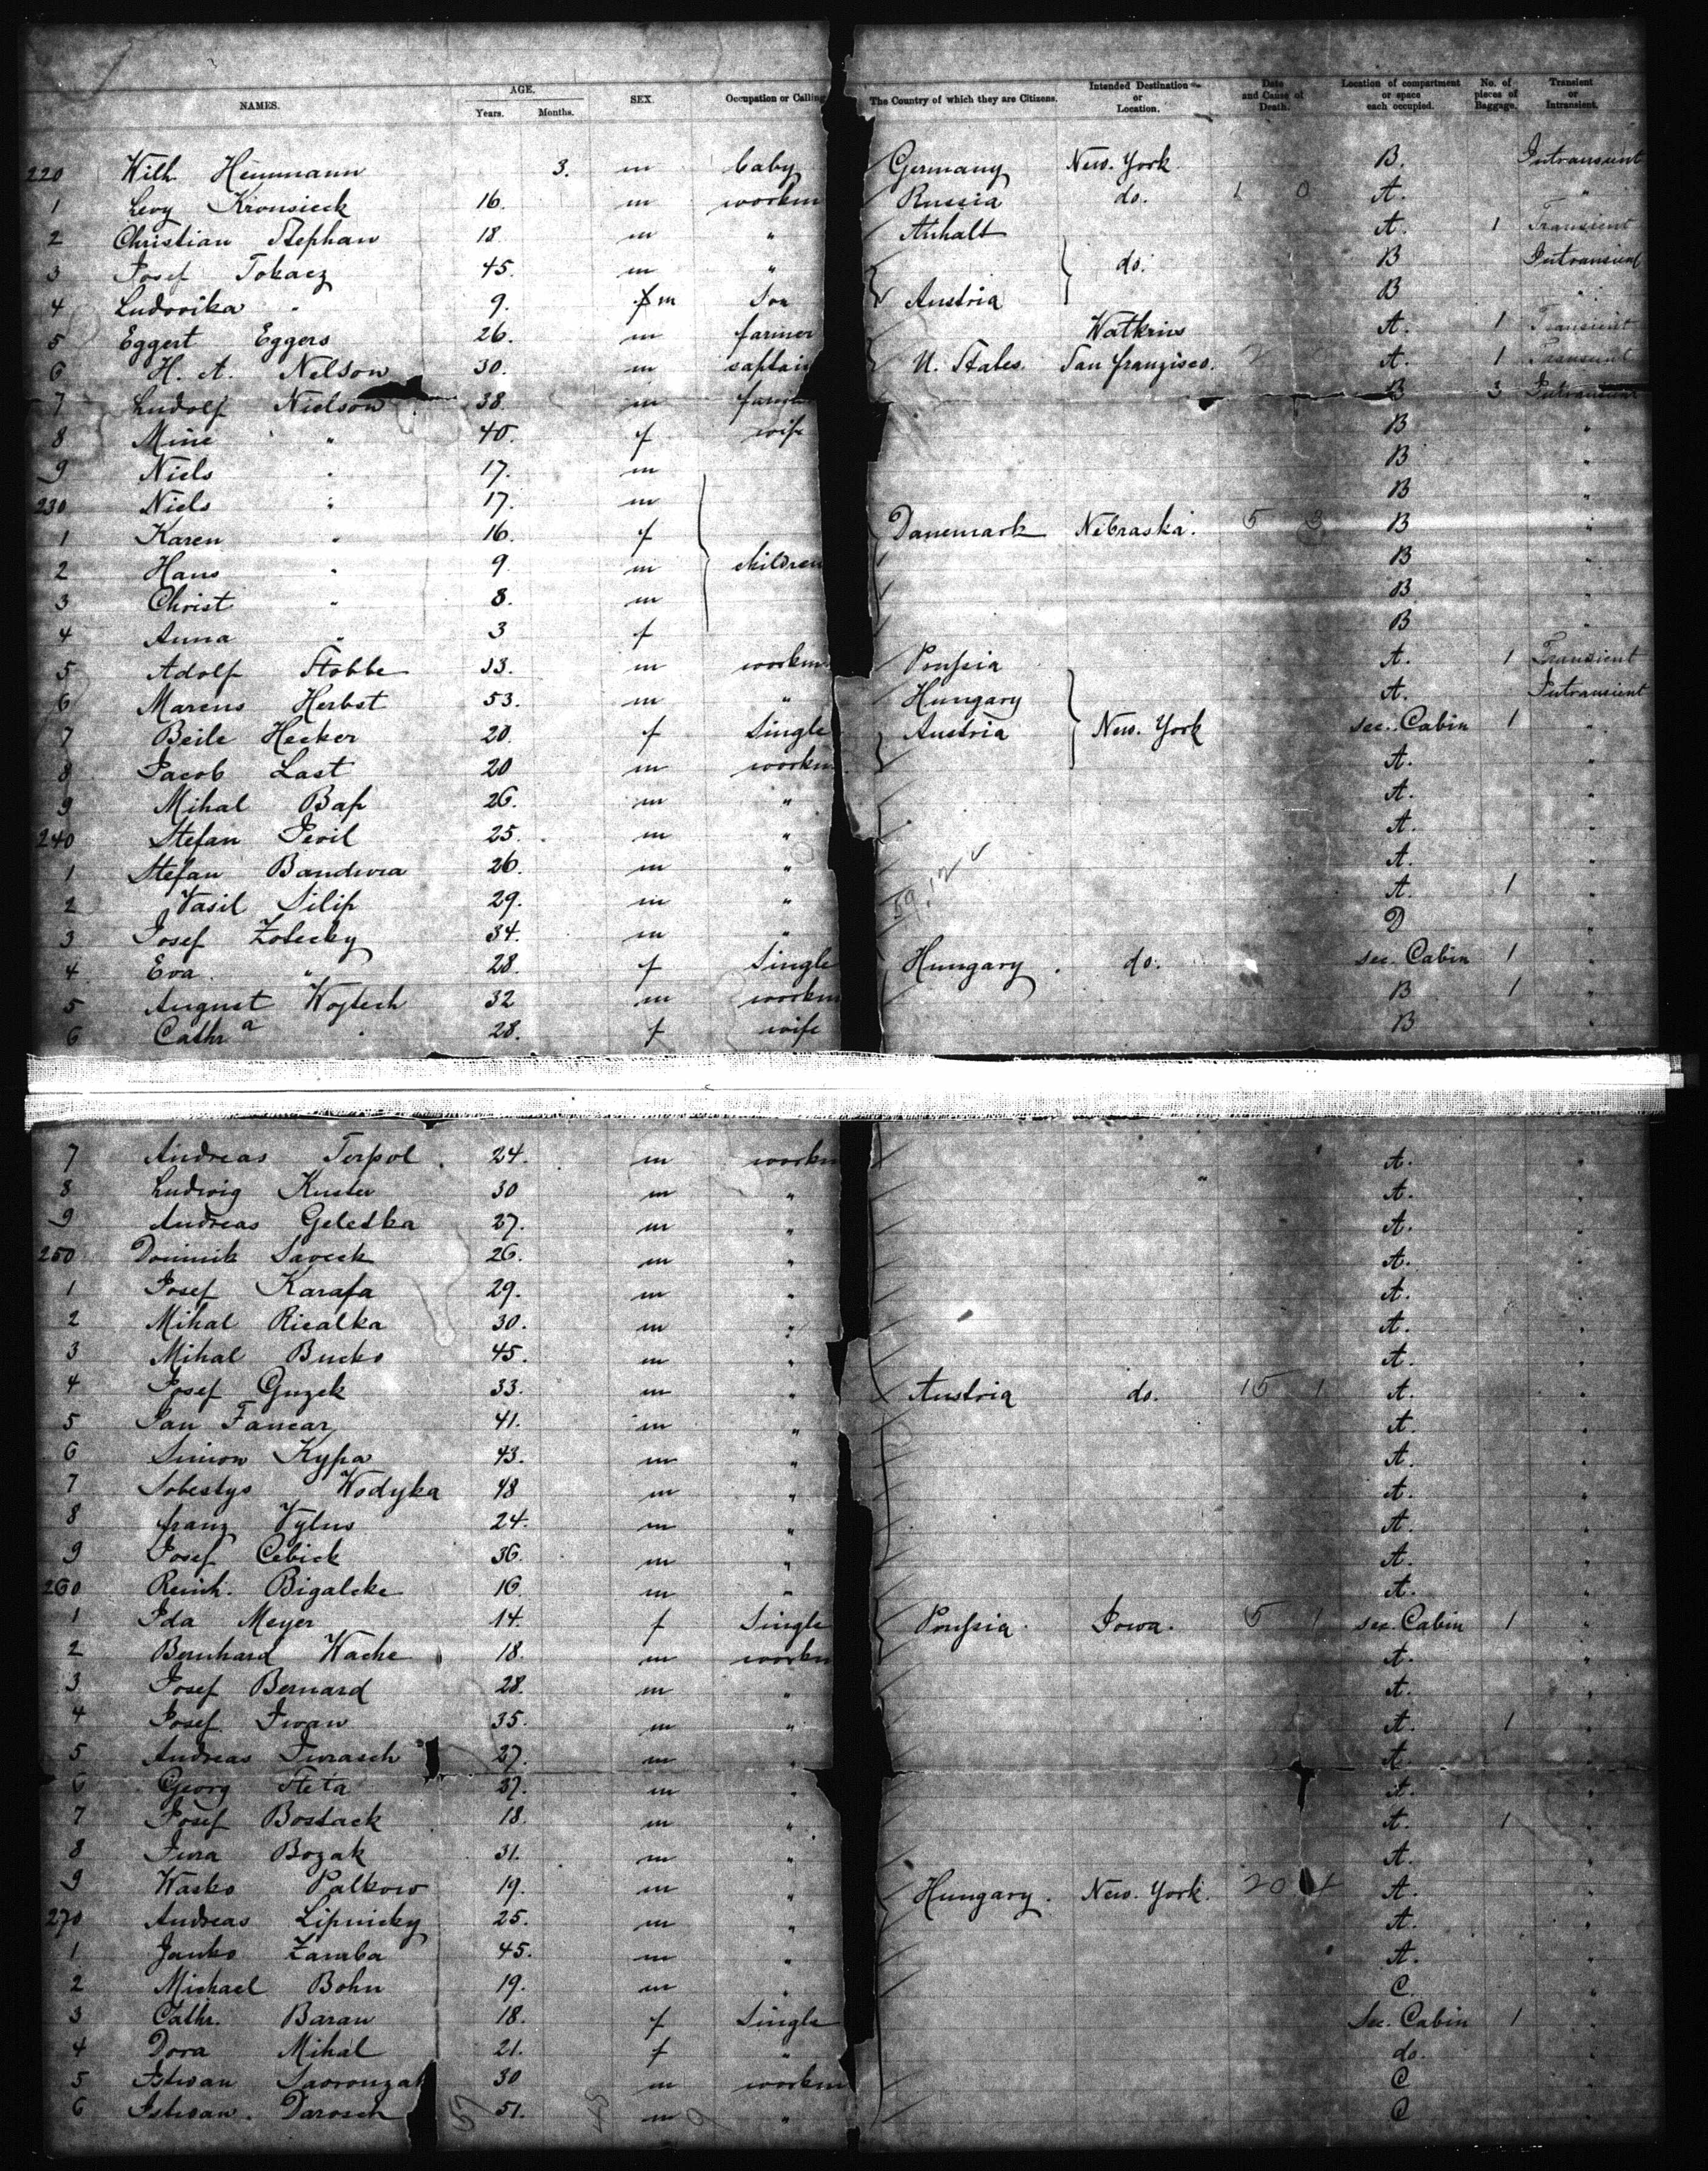 NAMES. AGE. Years. Months. SEX. Occupation or Calling The Country of which they are Citizens. Intended Destination or Location. Date and Cause of Death. Location of compartment or space each occupied. No. of pieces of Baggage. Transient or Intransient.
220 Wilh. Heinmann 3. m baby Germany New. York B. Intransient
1 Levy Kronsieck 16. m workm Russia do. 1 0 A. "
2 Christian Stephan 18. m " Anhalt A. 1 Transient
3 Josef Tokacz 45. m " do. B Intransient
4 Ludovika " 9. m Son Austria B "
5 Eggert Eggers 26. m farmer Watkins A. 1 Transient
6 H. A. Nelson 30. m captain U. States. San franzisco. 2 A. 1 Transient
7 Ludolf Nielson 38. m farm B 3 Intransient
8 Mine " 40. f wife B "
9 Niels " 17. m B "
230 Niels " 17. m B "
1 Karen " 16. f Danemark Nebraska. 5 3 B "
2 Hans " 9. m children B "
3 Christ " 8. m B "
4 Anna " 3 f B "
5 Adolf Stobbe 33. m workm Prussia A. 1 Transient
6 Marcus Herbst 53. m " Hungary A. Intransient
7 Beile Hecker 20. f Single Austria New. York sec. Cabin 1 "
8 Jacob Last 20 m workm A. "
9 Mihal Bas 26. m " A. "
240 Stefan Pevil 25. m " A. "
1 Stefan Bandura 26. m " A. "
2 Vasil Silip 29. m " A. 1 "
3 Josef Zolecky 34. m " D "
4 Eva " 28. f Single Hungary. do. sec. Cabin 1 "
5 August Wojtech 32 m workm B 1 "
6 Cathra " 28. f wife B "
7 Andreas Terpol 24. m workm A. "
8 Ludwig Kuster 30 m " A. "
9 Andreas Geletka 27. m " A. "
250 Dominik Saveck 26. m " A. "
1 Josef Karafa 29. m " A. "
2 Mihal Ricalka 30. m " A. "
3 Mihal Bucko 45. m " A. "
4 Josef Guzek 33. m " Austria do. 15 1 A. "
5 Jan Tancar 41. m " A. "
6 Simon Kypa 43. m " A. "
7 Sobestys Wodyka 48 m " A. "
8 franz Vylus 24. m " A. "
9 Josef Cebick 36. m " A. "
260 Reinh. Bigalcke 16. m " A. "
1 Ida Meyer 14. f Single Prussia. Iowa. 5 1 sec. Cabin 1 "
2 Bernhard Wache 18. m workm A. "
3 Josef Bernard 28. m " A. "
4 Josef Iwan 35. m " A. 1 "
5 Andreas Jurasch 27. m " A. "
6 Georg Steta 37. m " A. "
7 Josef Bostack 18. m " A. 1 "
8 Jura Bozak 31. m " A. "
9 Wasko Palkow 19. m " Hungary. New. York. 20 4 A. "
270 Andreas Lipnicky 25. m " A. "
1 Janko Zamba 45. m " A. "
2 Michael Bohn 19. m " C. "
3 Cathr. Baran 18. f Single Sec. Cabin 1 "
4 Dora Mihal 21. f " do. "
5 Istwan Saoronzak 30 m workm C "
6 Istwan. Darosch 51. m " C "